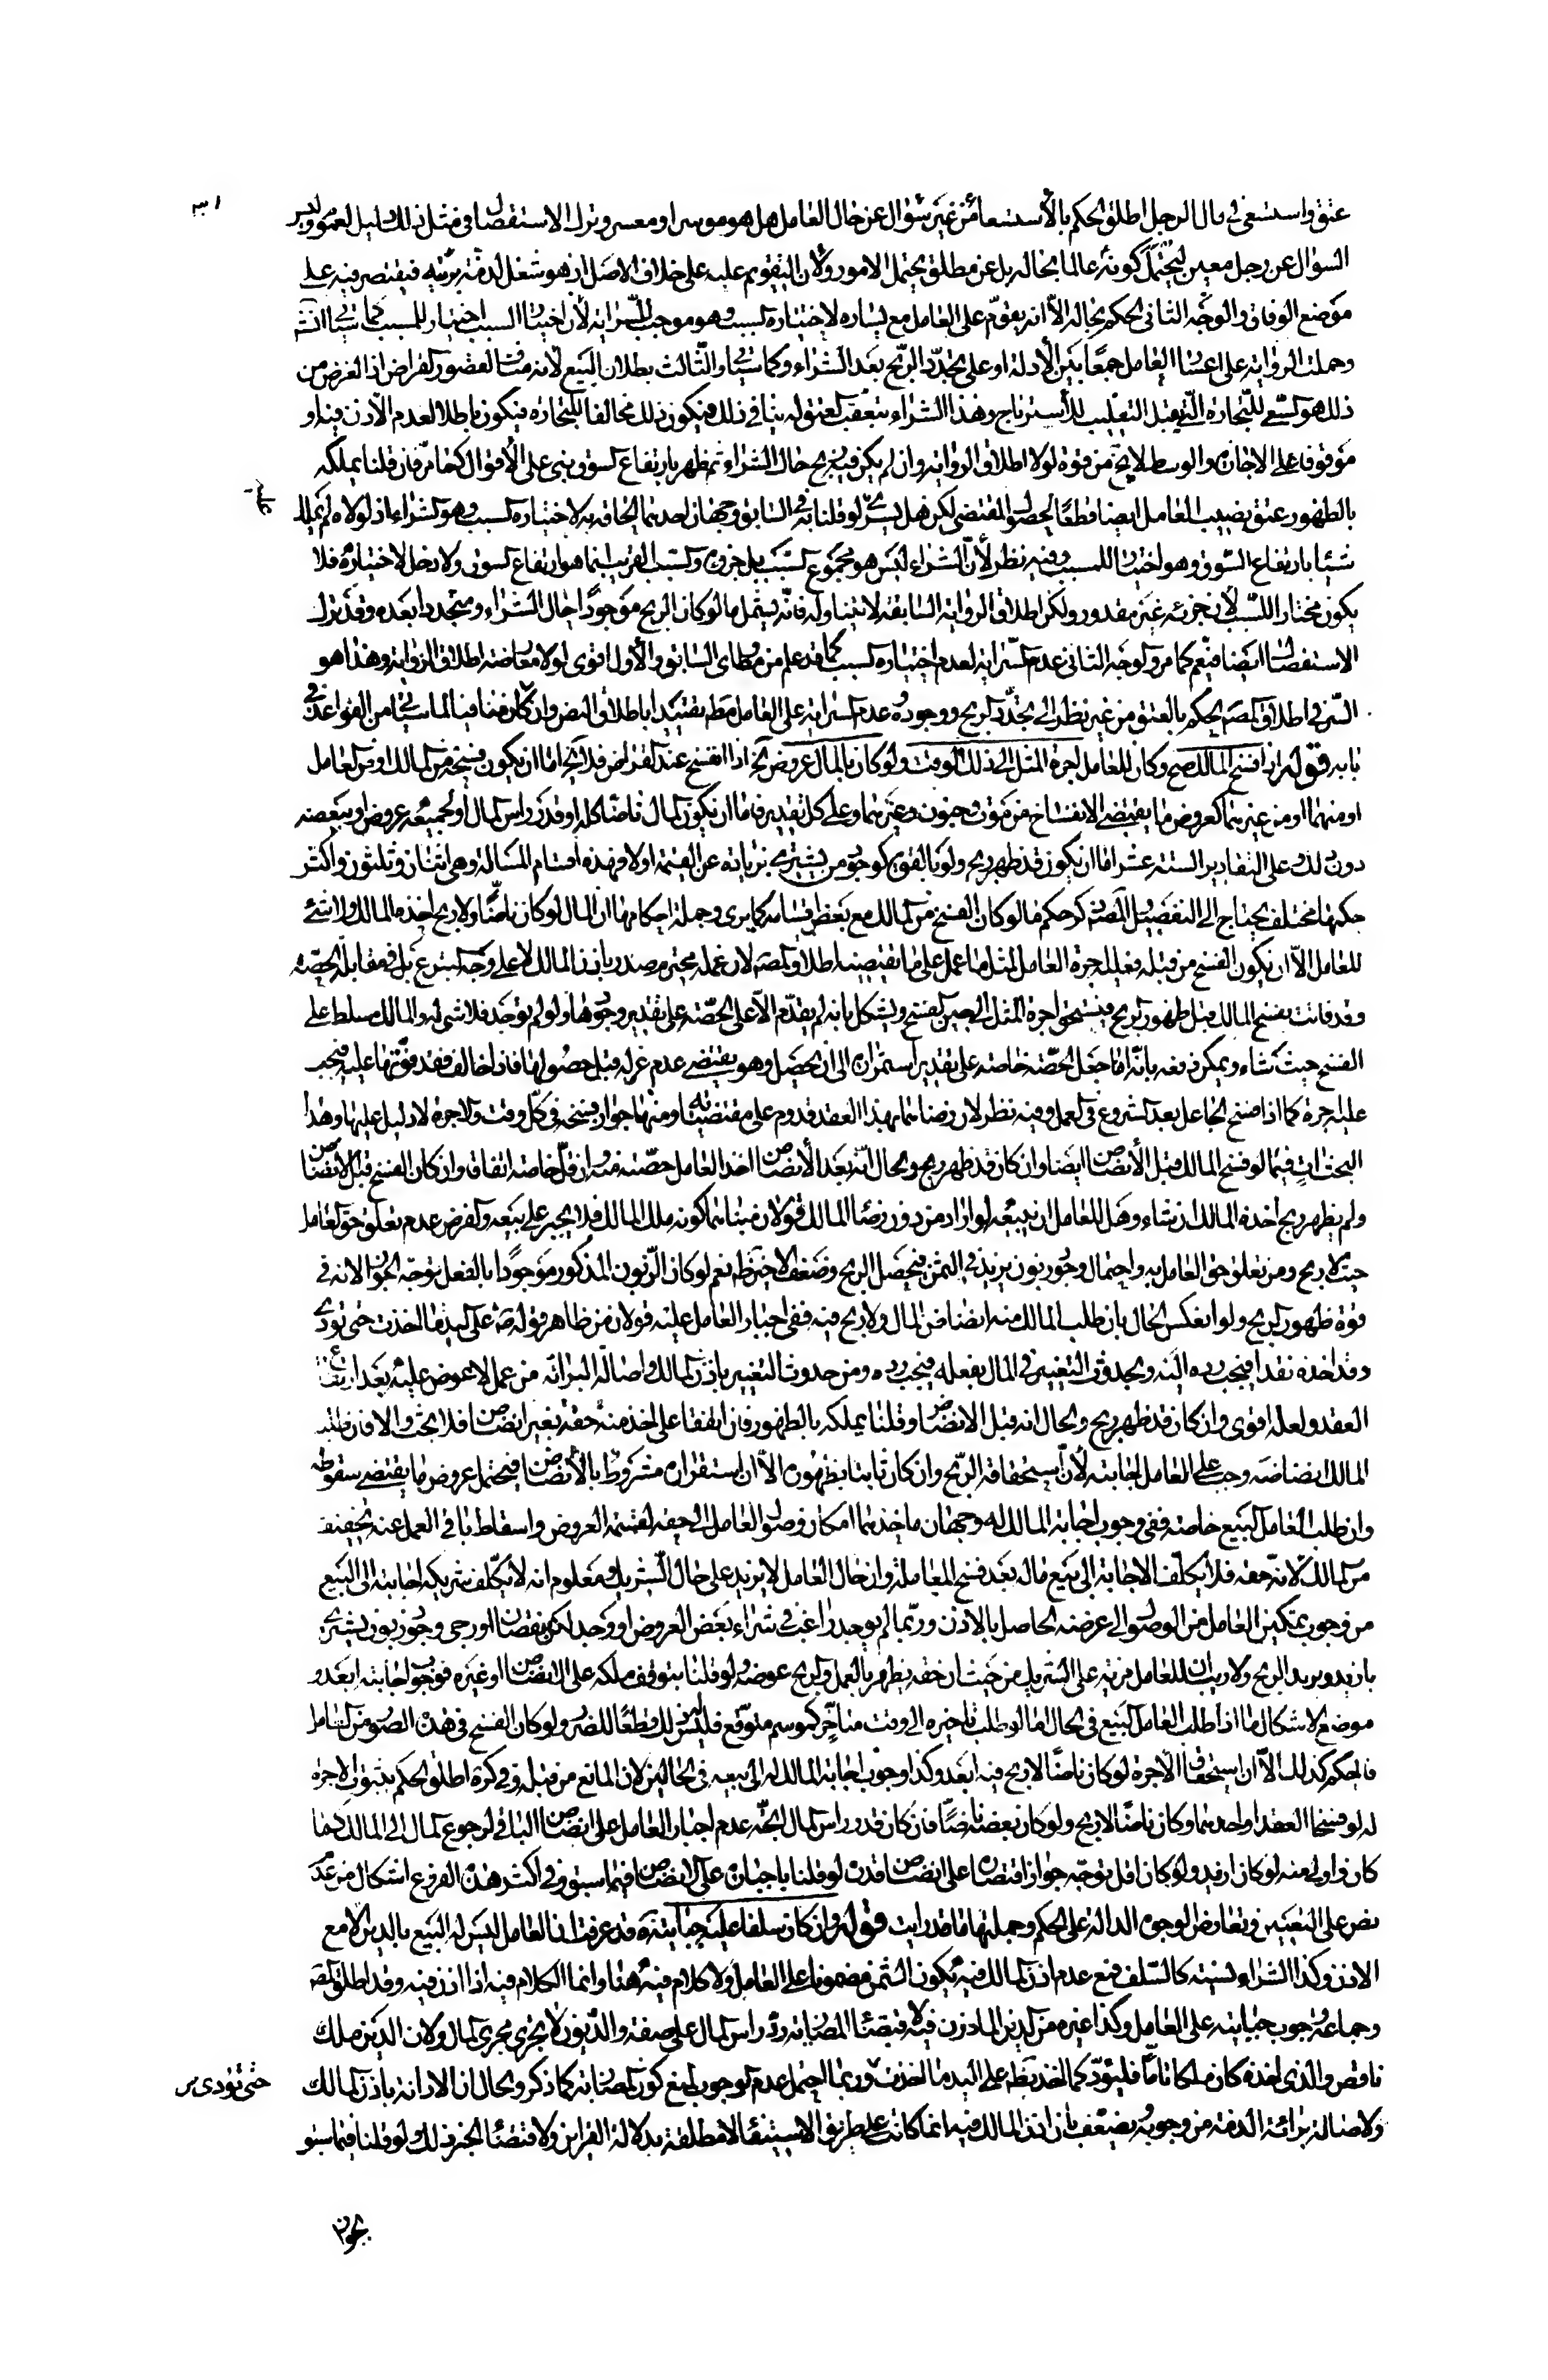 عتق واستسعى في مال الرجل اطلق الحكم بالاستسعاء من غير سؤال عن حال العامل هل هو موسر او معسر وترك الاستفصال في مثل ذلك دليل العموم وليس
السؤال عن رجل معين ليحتمل كونه عالما بحاله بل عن مطلق يحتمل الامور ولان التقويم عليه على خلاف الاصل اذ هو شغل لذمة بريئة فيقتصر فيه على
موضع الوفاق والوجه الثاني الحكم بحاله الا انه يقوم على العامل مع يساره لاختياره السبب وهو موجب للسراية لان اختيار السبب اختيار للمسبب كما سياتي انش
وحملت الرواية على اعسار العامل جمعا بين الادلة او على تجدد الربح بعد الشراء وكما سياتي والثالث بطلان البيع لانه مناف لمقصود القراض اذ الغرض من
ذلك هو السعي للتجارة التي تقبل التقليب للاسترباح وهذا الشراء يتعقب لعتق له ينافي ذلك فيكون ذلك مخالفا للتجارة فيكون باطلا لعدم الاذن فيه او
موقوفا على الاجازة والوسط لا يخ من قوة لولا اطلاق الرواية وان لم يكن فيه ربح حال الشراء ثم ظهر بارتفاع السوق بني على الاقوال كما مر فان قلنا يملكه
بالظهور عتق نصيب العامل ايضا قطعا لحصول المقتضي لكن هل يسري لو قلنا به في السابق وجهان احدهما الحاقه به لاختياره السبب وهو الشراء اذ لولاه لم يملك
شيئا بارتفاع السوق وهو اختيار للمسبب وفيه نظر لان الشراء ليس هو مجموع السبب بل جزؤه والسبب القريب انما هو ارتفاع السوق ولا دخل لاختياره فلا
يكون مختارا للسبب لان جزئه غير مقدور ولكن اطلاق الرواية السابقة لا يتناوله فانه يشمل ما لو كان الربح موجودا حال الشراء ومتجددا بعده وقد ترك
الاستفصال ايضا فيعم كما مر والوجه الثاني عدم السراية لعدم اختياره السبب كما قد علم من مطاوي السابق والاول اقوى لولا معارضة اطلاق الرواية وهذا هو
السر في اطلاق المصنف الحكم بالعتق من غير نظر الى تجدد الربح ووجوده وعدم السراية على العامل مط تقييدا باطلاق النص وان كان منافيا لما سياتي من القواعد في
بابه قوله اذا فسخ المالك صح وكان للعامل اجرة المثل الى ذلك الوقت ولو كان بالمال عروض الخ اذا انفسخ عقد القراض فلا يخ اما ان يكون فسخه من المالك او من العامل
او منهما او من غيرهما كعروض ما يقتضي الانفساخ من موت وجنون وغيرهما وعلى كل تقدير فاما ان يكون المال ناضا كله او قدر راس المال او لجميعه عروض او ببعضه
دون ذلك وعلى التقادير الستة عشر اما ان يكون قد ظهر ربح ولو بالقوة كوجود من يشتري بزيادة عن القيمة او لا فهذه اقسام المسالة وهي اثنان وثلثون واكثر
حكمها مختلف يحتاج الى التفصيل والمصنف ذكر حكم ما لو كان الفسخ من المالك مع بعض اقسامه كما يرى وجملة احكامها ان المال لو كان ناضا ولا ربح اخذه المالك ولا شيء
للعامل الا ان يكون الفسخ من قبله فعليه اجرة العامل لمثل ما عمل على ما يقتضيه اطلاق المصنف لان عمله محترم صدر باذن المالك لا على وجه التبرع بل في مقابلة الحصة
وقد فاتت بفسخ المالك قبل ظهور الربح فيستحق اجرة المثل الى حين الفسخ ويشكل بانه لم يقدم الا على الحصة على تقدير وجودها ولو لم توجد فلا شيء له والمالك مسلط على
الفسخ حيث شاء ويمكن دفعه بانه انما جعل الحصة خاصة على تقدير استمراره الى ان يحصل وهو يقتضي عدم عزله قبل حصولها فاذا خالف فقد فوتها عليه فيجب
عليه اجرة كما اذا فسخ الجاعل بعد الشروع في العمل وفيه نظر لان رضاهما بهذا العقد قدوم على مقتضياته ومنها جواز فسخه في كل وقت والاجرة لا دليل عليها وهذا
البحث ات فيما لو فسخ المالك قبل الانضاض ايضا وان كان قد ظهر ربح والحال انه بعد الانضاض اخذ العامل حصته منه وان قل خاصة اتفاقا وان كان الفسخ قبل الانضاض
ولم يظهر ربح اخذه المالك ان شاء وهل للعامل ان يبيعه لو اراد من دون رضا المالك قولان مبناهما كونه ملك المالك فلا يجبر على بيعه والفرض عدم تعلق حق العامل
حيث لا ربح ومن تعلق حق العامل به واحتمال وجود زبون يزيد في الثمن فيحصل الربح وضعف الاخير ظ نعم لو كان الزبون المذكور موجودا بالفعل توجه الجواز لانه في
قوة ظهور الربح ولو انعكس الحال بان طلب المالك منه انضاض المال ولا ربح فيه ففي اجبار العامل عليه قولان من ظاهر قوله ص على اليد ما اخذت حتى تؤدي
وقد اخذه نقدا فيجب رده اليه ولحدوث التغيير في المال بفعله فيجب رده ومن حدوث التغيير باذن المالك واصالة البرائة من عمل لا عوض عليه بعد ارتفاع
العقد ولعله اقوى وان كان قد ظهر ربح والحال انه قبل الانضاض وقلنا يملكه بالظهور فان اتفقا على اخذ منه حقه بغير انضاض فلا بحث والا فان طلب
المالك انضاضه وجب على العامل اجابته لان استحقاقه الربح وان كان ثابتا بظهوره الا ان استقراره مشروط بالانضاض فيحتمل عروض ما يقتضي سقوطه
وان طلب العامل البيع خاصة ففي وجوب اجابة المالك له وجهان ماخذهما امكان وصول العامل الى حقه لقسمة العروض واسقاط باقي العمل عنه تخفيف
من المالك لانه حقه فلا يكلف الاجابة الى بيع ماله بعد فسخ المعاملة وان حال العامل لا يزيد على حال الشريك ومعلوم انه لا يكلف شريكه اجابته الى البيع
من وجوب تمكين العامل من الوصول الى عرضه الحاصل بالاذن وربما لم يوجد راغب في شراء بعض العروض او وجد لكن بنقصان او رجي وجود زبون يشتري
بازيد ويزيد الربح ولا ريب ان للعامل مزية على الشريك من حيث ان حقه يظهر بالعمل والربح عوضه ولو قلنا بتوقف ملكه على الانضاض او غيره فوجوب اجابته ابعد و
موضع الاشكال ما اذا طلب العامل البيع في الحال اما لو طلب تاخيره الى وقت متاخر كموسم متوقع فليس له ذلك قطعا للضرر ولو كان الفسخ في هذه الصور من العامل
فالحكم كذلك الا ان استحقاق الاجرة لو كان ناضا لا ربح فيه ابعد وكذا وجوب اجابة المالك له الى بيعه في الحالين لان المانع من قبله وفي كره اطلق الحكم بثبوت الاجرة
له لو فسخا العقد او احدهما وكان ناضا لا ربح ولو كان بعضه ناضا فان كان قدر راس المال اتجه عدم اجبار العامل على انضاض الباقي لرجوع المال الى المالك كما
كان واولى منه لو كان ازيد ولو كان اقل توجه جواز اقتصاره على انضاض قدره لو قلنا باجباره على الانضاض فيما سبق وفي اكثر هذه الفروع اشكال من عدم
نص على التعيين وتعارض الوجوه الدالة على الحكم وجملتها ما قد رايت قوله وان كان سلفا عليه جبايته قد عرفت ان العامل ليس له البيع بالدين الا مع
الاذن وكذا الشراء نسيئة كالسلف فمع عدم اذن المالك فيه يكون الثمن مضمونا على العامل ولا كلام فيه هنا وانما الكلام فيه اذا اذن فيه وقد اطلق المصنف
وجماعة وجوب جبايته على العامل وكذا غيره من الدين الماذون فيه لاقتضاء المضاربة رد راس المال على صفته والديون لا تجري مجرى المال ولان الدين ملك
ناقص والذي اخذه كان ملكا تاما فليؤد كما اخذ بظ على اليد ما اخذت وربما احتمل عدم الوجوب لمنع كون المضاربة كما ذكر والحال ان الادانة باذن المالك
حتى تؤدى
ولاصالة برائة الذمة من وجوبه ويضعف بان اذن المالك فيه انما كانت على طريق الاستيفاء لا مطلقة بدلالة القراين ولاقتضاء الخبر ذلك ولو قلنا فيما سبق
بجواز